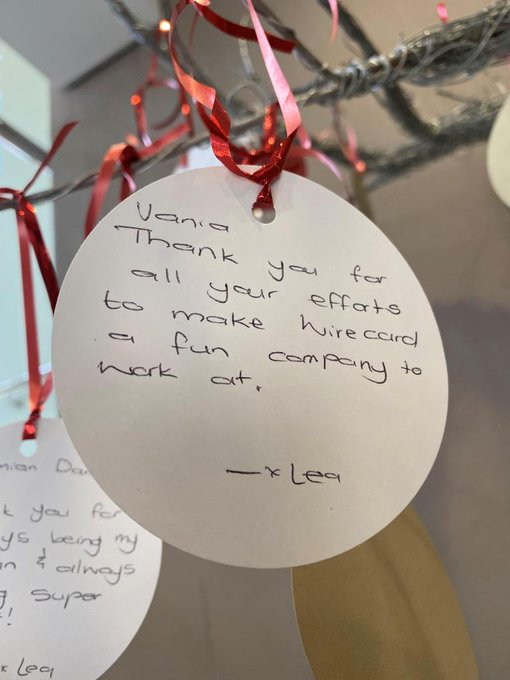 Vania
Thank you for
all your efforts
to make Wirecard
a fun company to
work at.
—x Lea
you for
being my
& always
super
x Lea